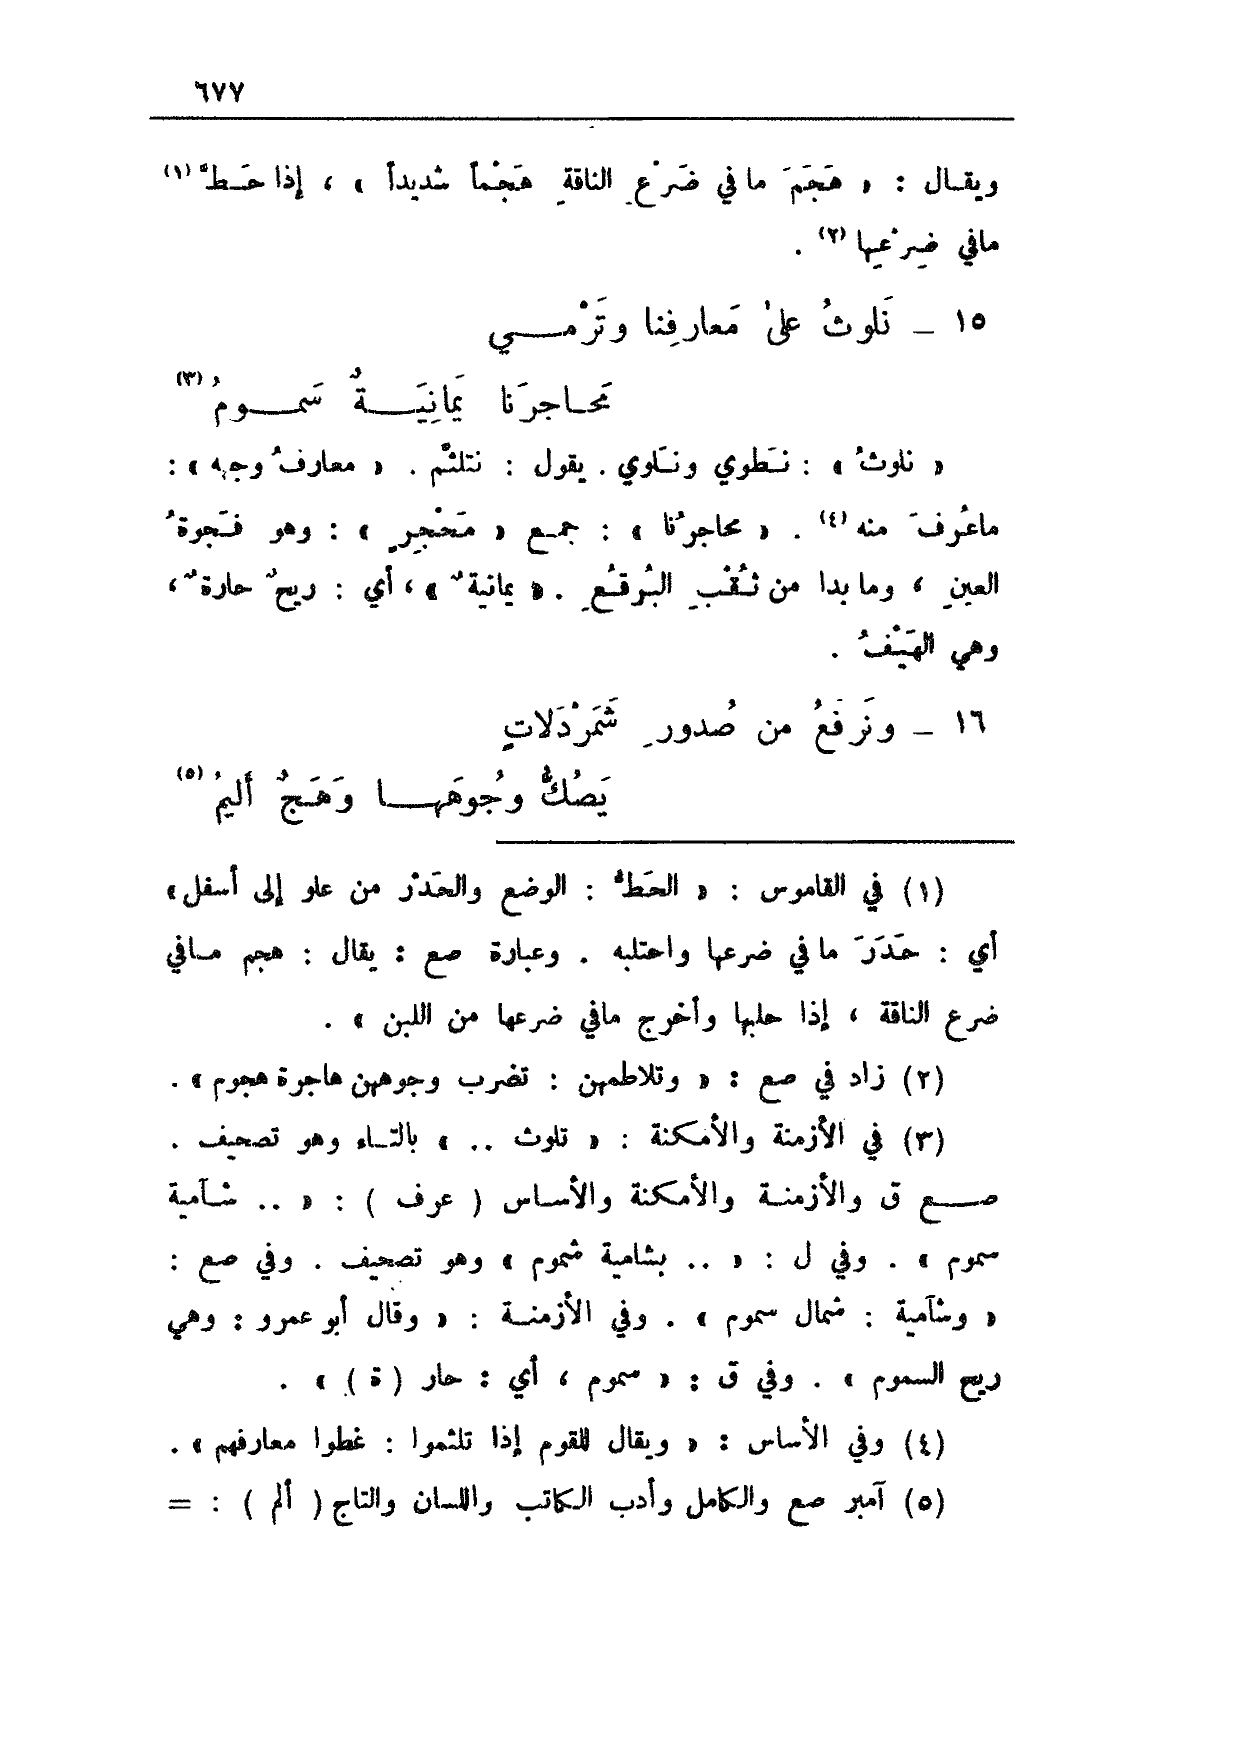 ٦٧٧
ويقـال : « هَجَمَ ما في ضَرْعِ الناقةِ هَجْماً شديداً » ، إذا حَـطَّ (١)
مافي ضِرعِها (٢) .
١٥ ــ نَلوثُ علىٰ مَعارفِنا وتَرْمـــي
مَحـاجرَنا يَمانِيَـــةٌ سَمـــومُ (٣)
« نلوثُ » : نَـطوي ونَـلوي . يقول : نتلثَّم . « معارفُ وجهِه » :
ماعُرفَ منه (٤) . « محاجرُنا » : جمـع « مَحْجِرٍ » : وهو فَـجوةُ
العينِ ، وما بدا من ثُقْبِ البُرقُعِ . « يمانيةٌ » ، أي : ريحٌ حارةٌ ،
وهي الهَيْفُ .
١٦ ــ ونَرفَعُ من صُدورِ شَمَرْدَلاتٍ
يَصُكُّ وجُوهَهـــا وَهَـجٌ أَليمُ (٥)
(١) في القاموس : « الحَطُّ : الوضع والحَدْر من علو إلى أسفل »
أي : حَدَرَ ما في ضرعها واحتلبه . وعبارة صع : يقال : هجم مـافي
ضرع الناقة ، إذا حلبها وأخرج مافي ضرعها من اللبن » .
(٢) زاد في صع : « وتلاطمهن : تضرب وجوههن هاجرة هجوم » .
(٣) في الأزمنة والأمكنة : « تلوث .. » بالتـاء وهو تصحيف .
صـــع ق والأزمنـة والأمكنة والأسـاس ( عرف ) : « .. شـآمية
سموم » . وفي ل : « .. بشامية شموم » وهو تصحيف . وفي صع :
« وشآمية : شمال سموم » . وفي الأزمنـة : « وقال أبو عمرو : وهي
ريح السموم » . وفي ق : « سموم ، أي : حار ( ة ) » .
(٤) وفي الأساس : « ويقال للقوم إذا تلثموا : غطوا معارفهم » .
(٥) آمبر صع والكامل وأدب الكاتب واللسان والتاج ( ألم ) : =